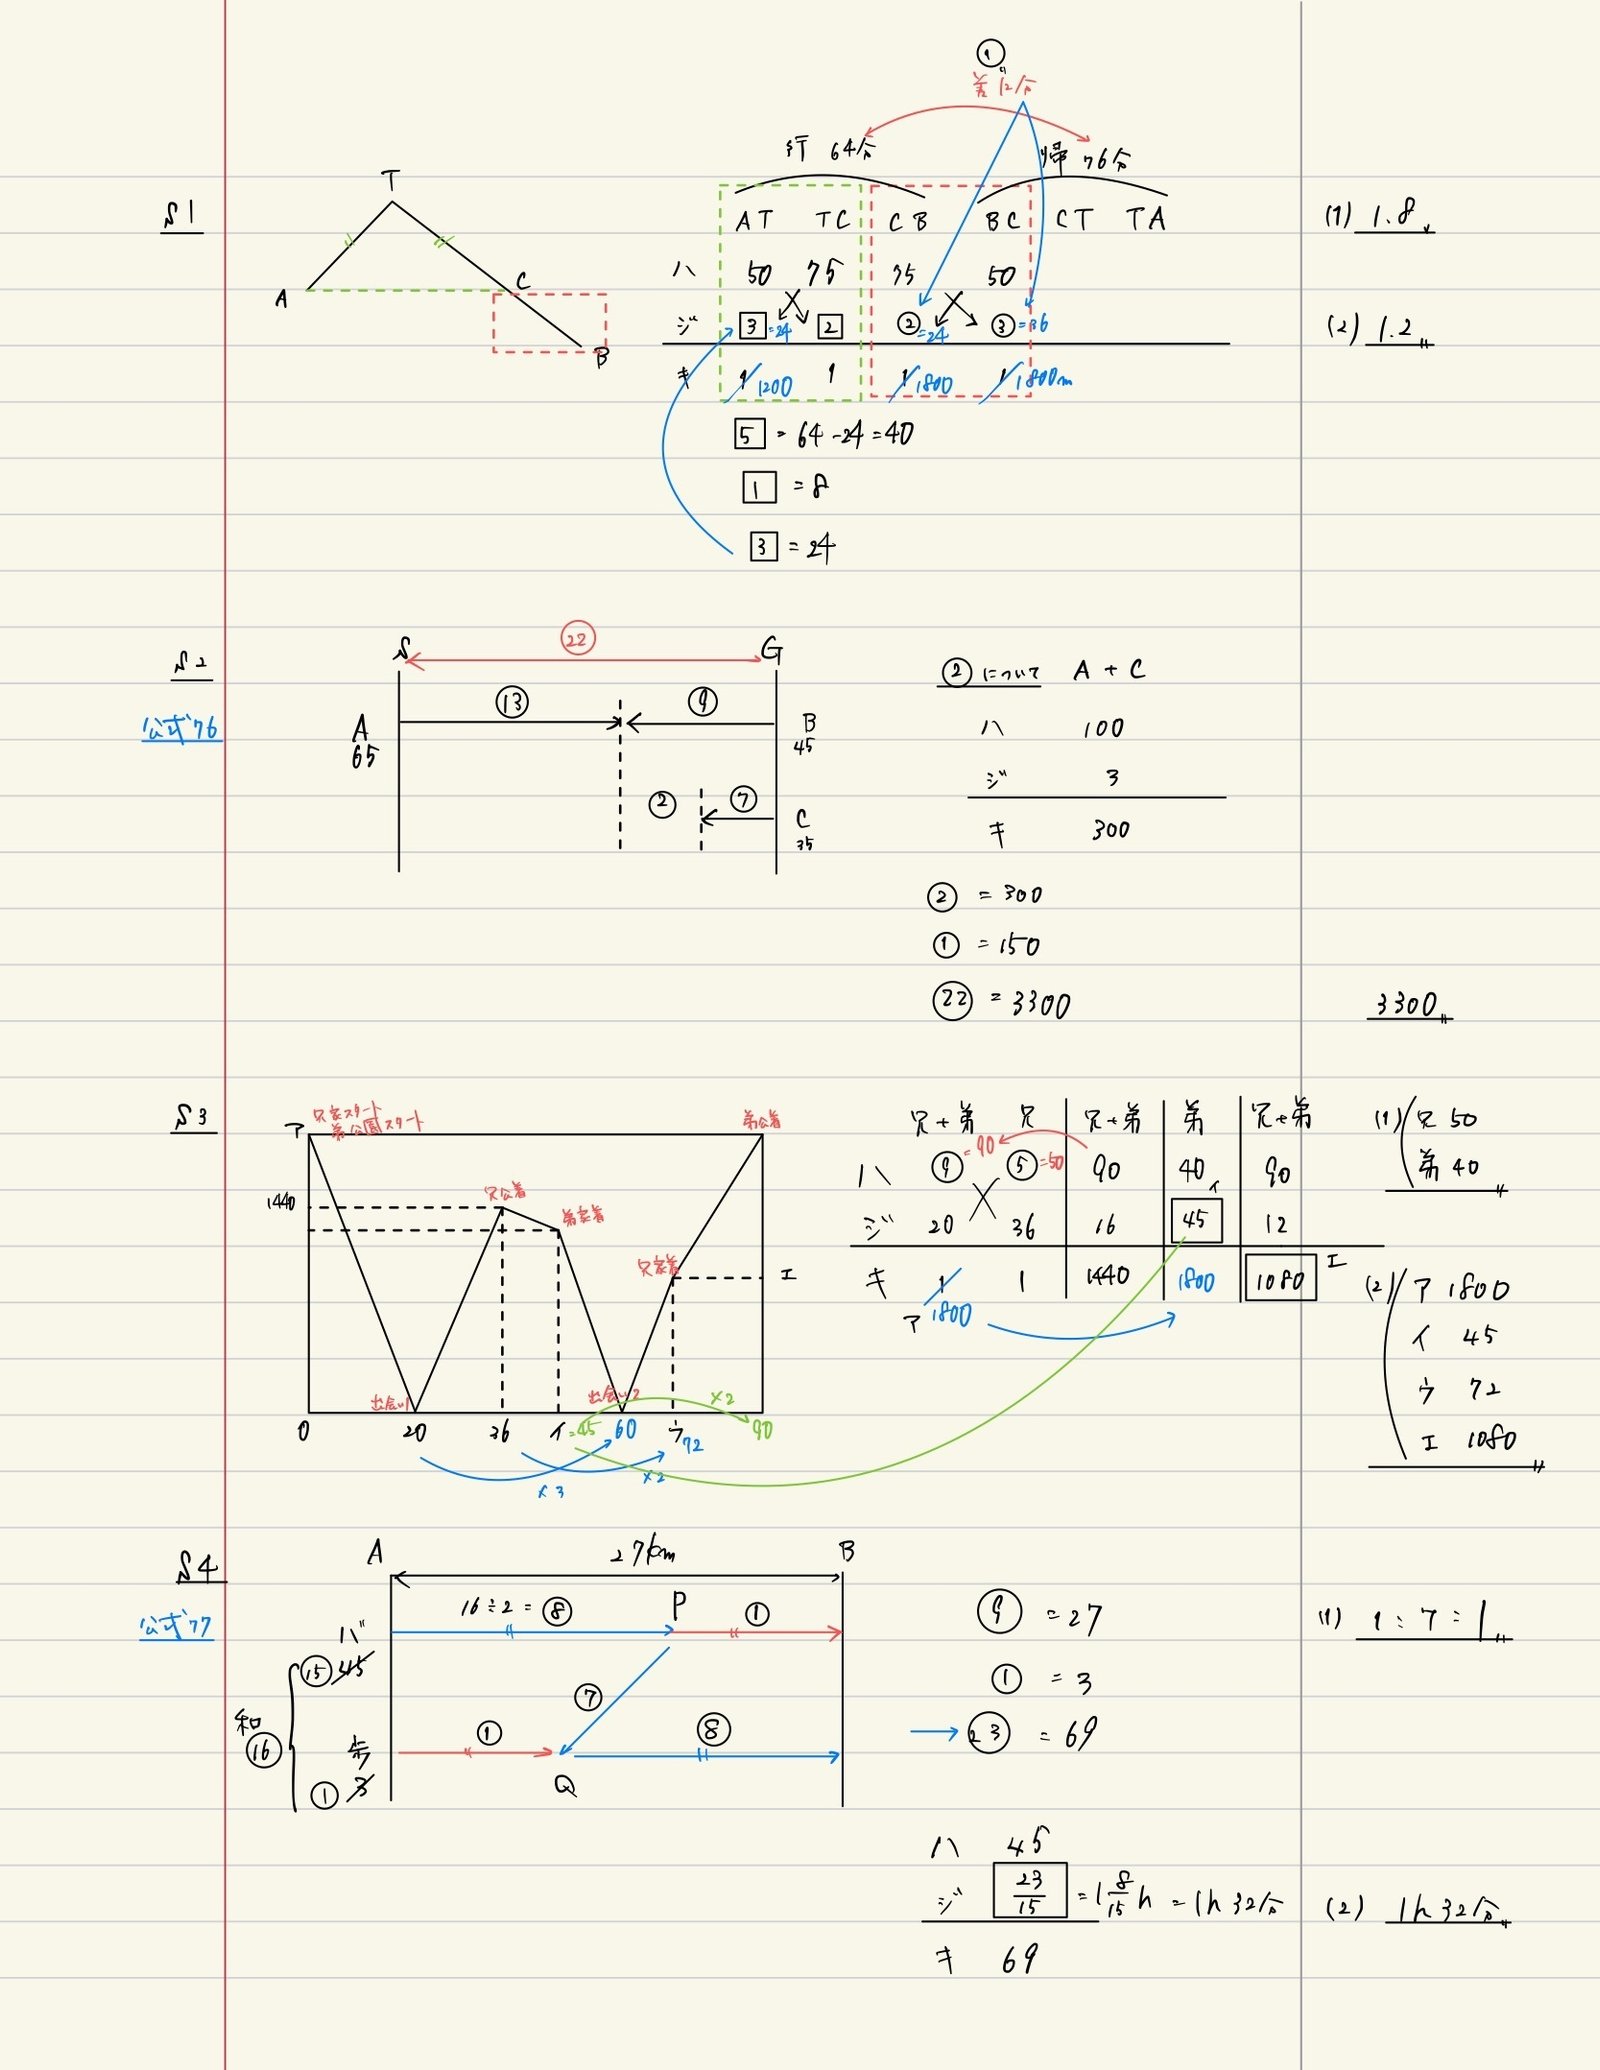 S1
T
A
C
B
①
〃
差12分
行 64分
帰 76分
AT TC CB BC CT TA
ハ 50 75 75 50
ジ 3 =24 2 ②=24 ③=36
キ 1 1200 1 1 1800 1 1800m
5 = 64-24=40
1 = 8
3 = 24
(1) 1.8
(2) 1.2
S2
公式76
S
G
㉒
⑬
⑨
A
65
B
45
②
⑦
C
35
②について A+C
ハ 100
ジ 3
キ 300
② = 300
① = 150
㉒ = 3300
3300
S3
ア
兄家スタート
弟公園スタート
弟公着
1440
兄公着
弟家着
兄家着
エ
出会い1
出会い2
×2
0 20 36 イ=45 60 ウ 72 90
×3
×2
兄+弟 兄 兄+弟 弟 兄+弟
ハ ⑨=90 ⑤=50 90 40 90
ジ 20 36 16 45 イ 12
キ 1 1 1440 1800 1080 エ
ア 1800
(1) 兄 50
弟 40
(2) ア 1800
イ 45
ウ 72
エ 1080
S4
公式77
A
27km
B
16÷2=⑧
P
①
バ
⑮ 45
⑦
和
⑯
歩
① 3
①
⑧
Q
⑨ = 27
① = 3
→ ㉓ = 69
ハ 45
ジ 23/15 = 1 8/15 h = 1h 32分
キ 69
(1) 1:7:1
(2) 1h 32分